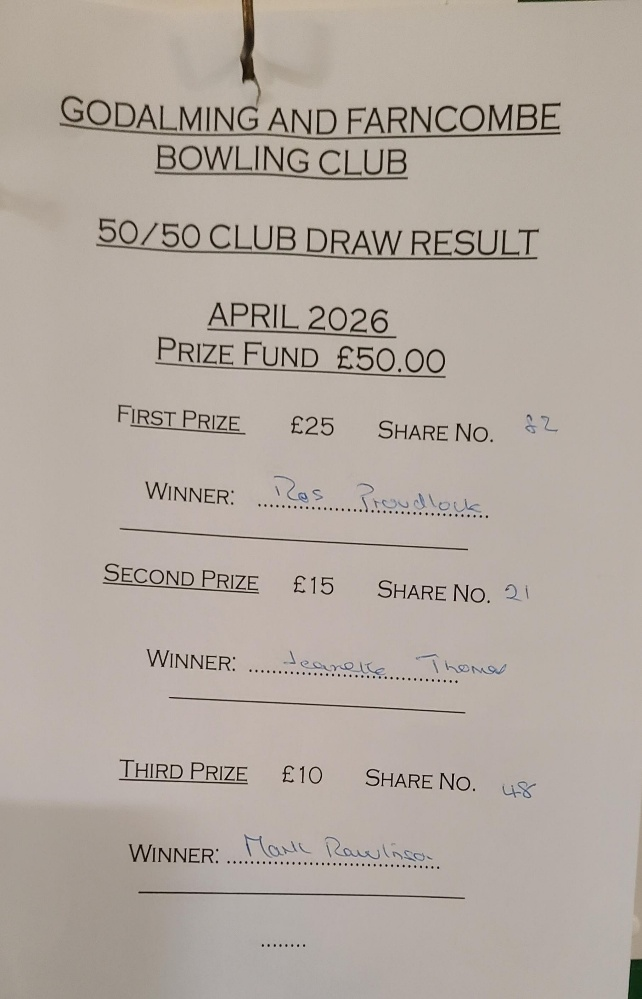 GODALMING AND FARNCOMBE
BOWLING CLUB
50/50 CLUB DRAW RESULT
APRIL 2026
PRIZE FUND £50.00
FIRST PRIZE £25 SHARE NO. 82
WINNER: Ros Proudlock
SECOND PRIZE £15 SHARE NO. 21
WINNER: Jeanette Thomas
THIRD PRIZE £10 SHARE NO. 48
WINNER: Mark Rawlinson